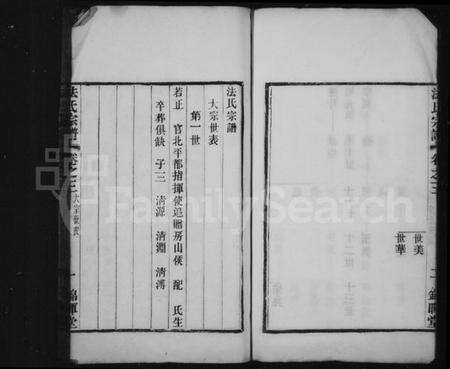 世美
世華
法氏宗譜
大宗世表
第一世
若止 官北平都指揮使追贈房山侯 配 氏生
卒葬俱缺 子三 清源 清淵 清溥
法氏宗譜 卷之三 大宗世表 一 錦暉堂
FamilySearch